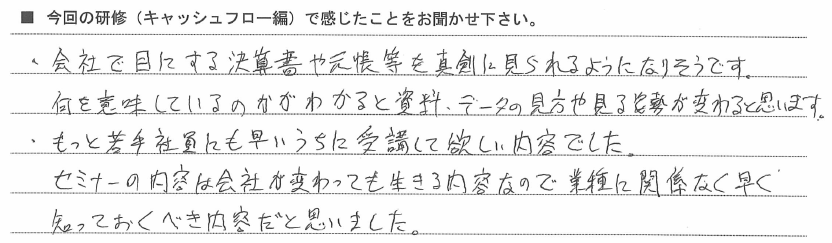 ■ 今回の研修（キャッシュフロー編）で感じたことをお聞かせ下さい。
・会社で目にする決算書や元帳等を真剣に見られるようになりそうです。
何を意味しているのかがわかると資料、データの見方や見る姿勢が変わると思います。
・もっと若手社員にも早いうちに受講して欲しい内容でした。
セミナーの内容は会社が変わっても生きる内容なので業種に関係なく早く
知っておくべき内容だと思いました。